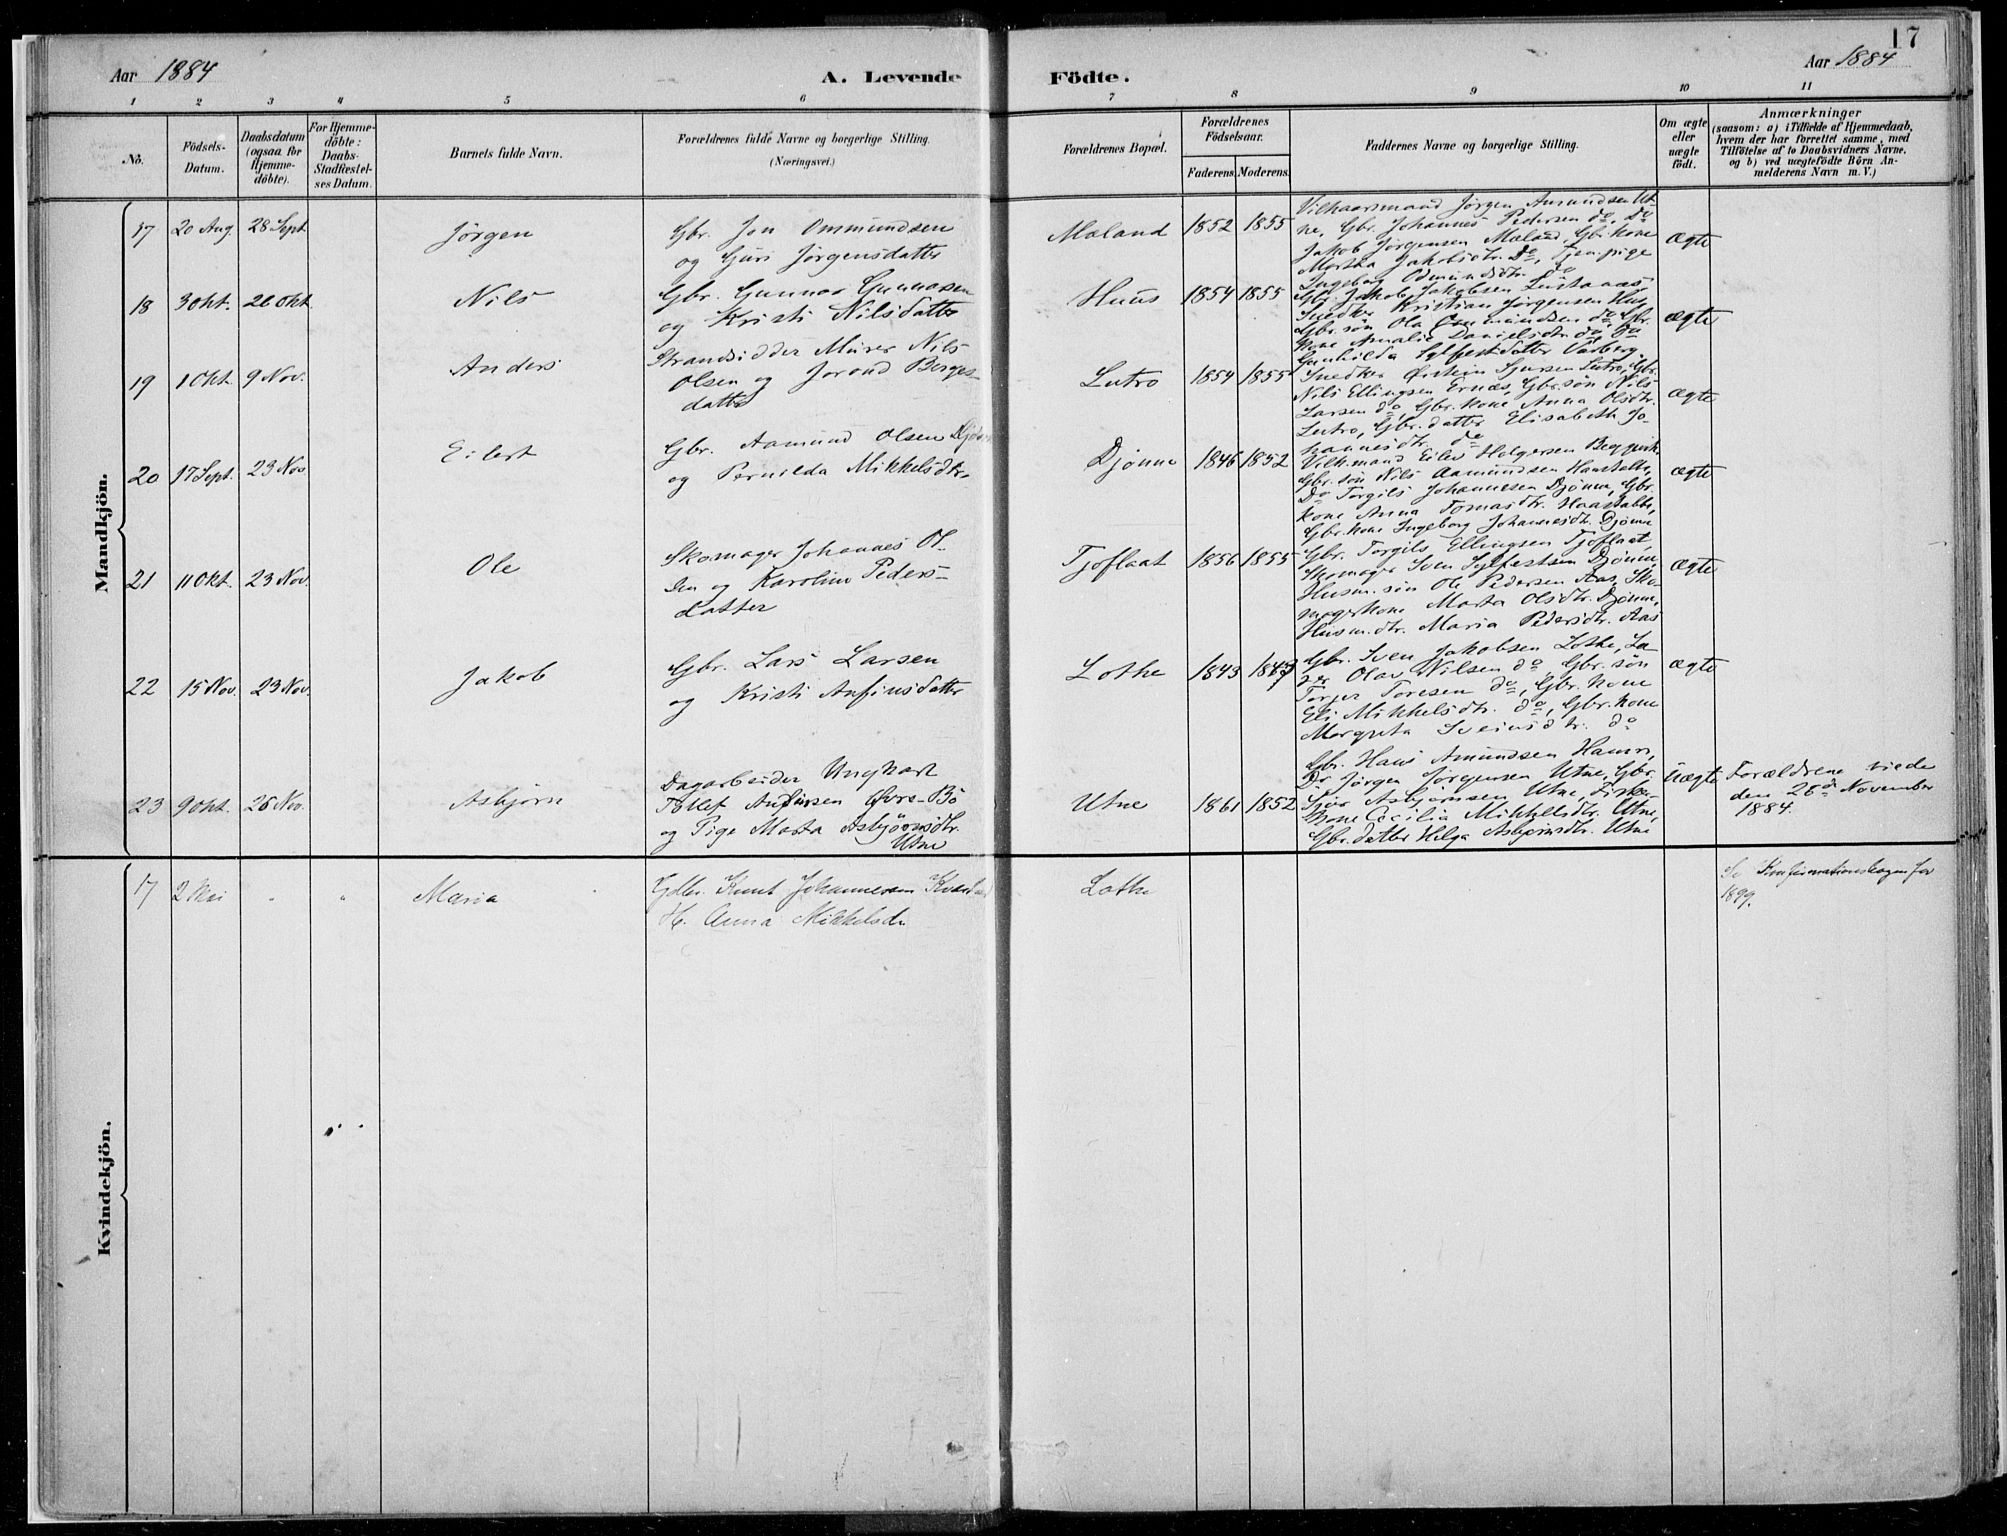 17
Aar 1884
A. Levende Födte.
Aar 1884
1 2 3 4 5 6 7 8 9 10 11
No.
Födsels-Datum.
Daabsdatum (ogsaa for Hjemme-döbte).
For Hjemme-döbte: Daabs-Stadfæstel-ses Datum.
Barnets fulde Navn.
Forældrenes fulde Navne og borgerlige Stilling.
(Næringsvei.)
Forældrenes Bopæl.
Forældrenes Födselsaar.
Faderens. Moderens.
Faddernes Navne og borgerlige Stilling.
Om ægte eller uægte födt.
Anmærkninger
(saasom: a) i Tilfælde af Hjemmedaab,
hvem der har forrettet samme, med
Tilföielse af to Daabsvidners Navne,
og b) ved uægtefödte Börn An-
melderens Navn m. V.)
Mandkjön.
17 20 Aug. 28 Sept. Jørgen
Gbr. Jon Ommundsen
og Guri Jørgensdatter
Mæland 1852 1855
Vilkaarsmand Jørgen Amundsen Ut-
ne, Gbr. Johannes Pedersen do, Do
Jakob Jørgensen Mæland, Gbr. kone
Martha Jakobsdtr. Do, Tjen.pige
Ingeborg Odmundsdtr. do
ægte
18 3 Okt. 26 Okt. Nils
Gbr. Gunnar Gunnarsen
og Kristi Nilsdatter
Huus 1854 1855
Gbr. Jakob Jakobsen
Snedker Kristian Jørgensen Hus,
Gbr. søn Ola Ommundsen do, Gbr.
kone Amalie Danielsdtr. do, Do
Gunhilda Sylfestdatter
ægte
19 1 Okt. 9 Nov. Anders
Strandsidder Murer Nils
Olsen og Jorond Berges-
datter
Lutro 1854 1855
Snedker Østein Sjursen Lutro, Gbr.
Nils Ellingsen Ernæs, Gbr. søn Nils
Larsen do, Gbr. kone Anna Olsdtr.
Lutro, Gbr. datter Elisabeth Jo-
hannesdtr. do
ægte
20 17 Sept. 23 Nov. Eilert
Gbr. Aamund Olsen Djønne
og Pernilda Mikkelsdtr.
Djønne 1846 1852
Vilk.mand Eilev Helgersen
Gbr. søn Nils Aamundsen
Do Torgils Johannesen Djønne, Gbr.
kone Anna Tomasdtr. Haastabbe,
Gbr. kone Ingeborg Johannesdtr. Djønne
ægte
21 11 Okt. 23 Nov. Ole
Skomager Johannes Ol-
sen og Karoline Peders-
datter
Tjoflaat 1856 1855
Gbr. Torgils Ellingsen Tjoflaat,
Skomager Sven Sylfestsen Djønne,
Husm. søn Ole Pedersen Aas, Sko-
magerkone Marta Olsdtr. Djønne,
Husm. dtr. Maria Pedersdtr. Aas
ægte
22 15 Nov. 23 Nov. Jakob
Gbr. Lars Larsen
og Kristi Anfinsdatter
Lothe 1843 1847
Gbr. Sven Jakobsen Lothe, La-
rer Olav Nilsen do, Gbr. søn
Torger Toresen do, Gbr. kone
Eli Mikkelsdtr. do, Gbr. kone
Margreta Sveinsdtr. do
ægte
23 9 Okt. 26 Nov. Asbjørn
Dagarbeider Ungkarl
Tollef Anfinsen Øvre-Bö
og Pige Marta Asbjørnsdtr.
Utne
Utne 1861 1852
Gbr. Hans Amundsen Hamre,
Do Jørgen Jørgensen Utne, Gbr.
Sjur Asbjørnsen Utne, Fisker-
kone Cecilia Mikkelsdtr. Utne,
Gbr. datter Helga Asbjørnsdtr. Utne
Uægte
Forældrene viede
den 26de November
1884.
Kvindekjön.
17 2 Mai " " Maria
Gdbr. Knut Johannesen
H. Anna Mikkelsdr
Lothe
Se Konfirmationsbogen for
1899.